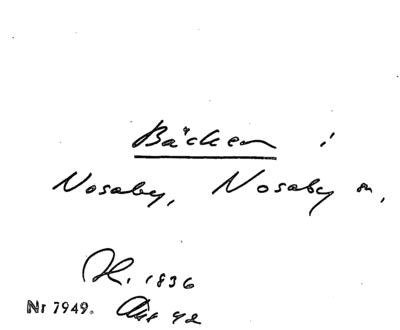 Bäcken i
Nosaby, Nosaby sn,
H. 1936
Nr 7949. 42